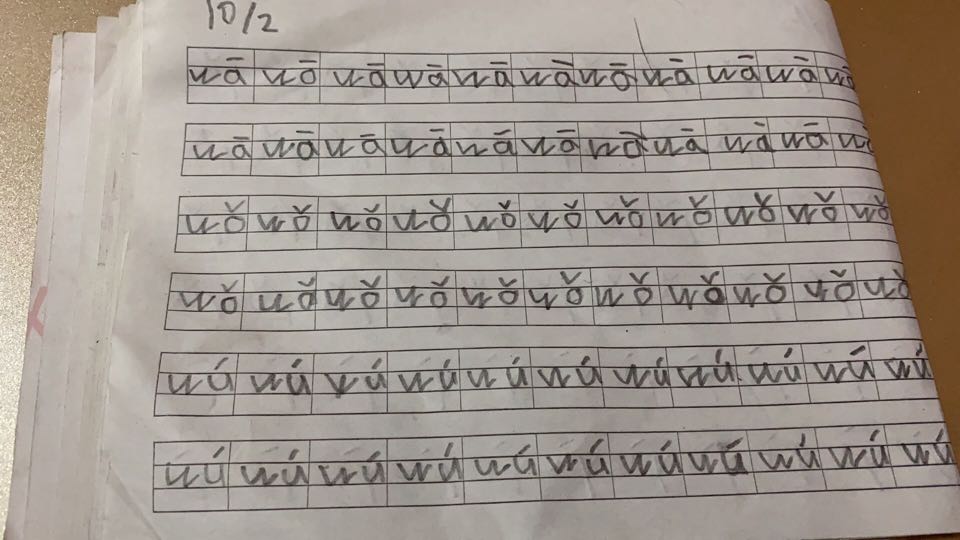 10/2
wā wā wā wā wā wā wā wā wā wā
wā wā wā wā wā wā wā wā wā wā
wǒ wǒ wǒ wǒ wǒ wǒ wǒ wǒ wǒ wǒ wǒ
wǒ wǒ wǒ wǒ wǒ wǒ wǒ wǒ wǒ wǒ wǒ
wú wú wú wú wú wú wú wú wú wú wú
wú wú wú wú wú wú wú wú wú wú wú